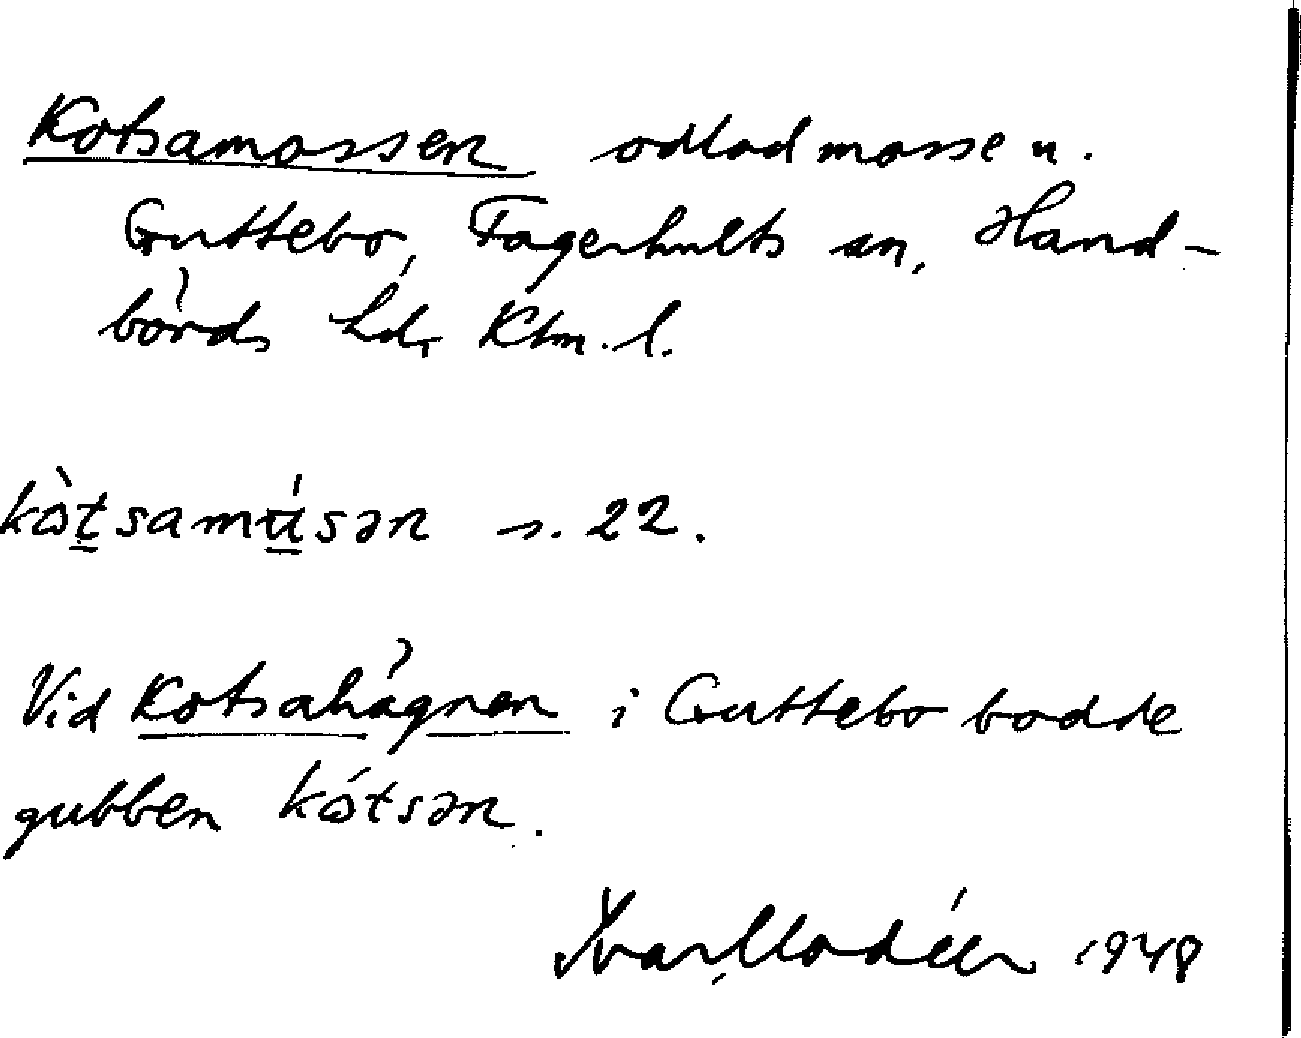 Kotsamossen odlad mosse u.
Guttebo, Fagerhults sn, Hand-
börds hd, Klm. l.
kòtsamúsən s. 22.
Vid Kotsahägnen i Guttebo bodde
gubben kótsən.
Ivar Modéer 1948